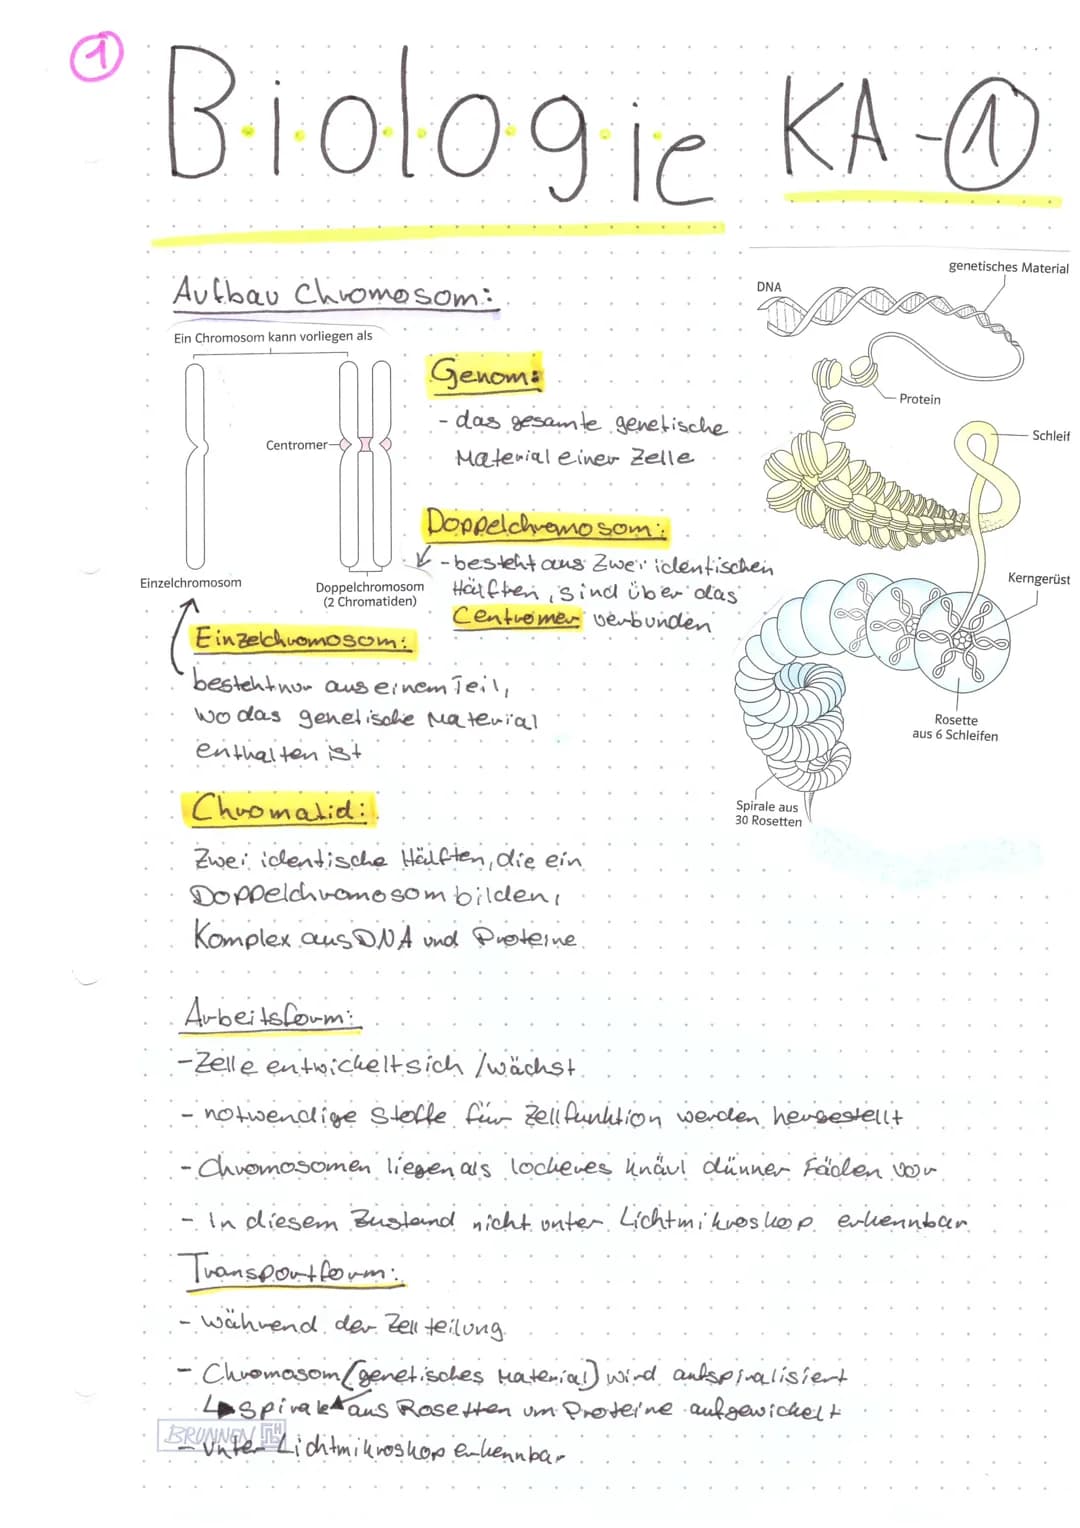 1
Biologie KA-1
Aufbau Chromosom:
Ein Chromosom kann vorliegen als
Centromer
Einzelchromosom
Doppelchromosom
(2 Chromatiden)
genetisches Material
DNA
Protein
Schleif
Kerngerüst
Rosette
aus 6 Schleifen
Spirale aus
30 Rosetten
Genom:
- das gesamte genetische
Material einer Zelle
Doppelchromosom:
- besteht aus zwei identischen
Hälften, sind über das
Centromer verbunden
Einzelchromosom:
besteht nur aus einem Teil,
wo das genetische Material
enthalten ist
Chromatid:
Zwei identische Hälften, die ein
Doppelchromosom bilden,
Komplex aus DNA und Proteine
Arbeitsform:
- Zelle entwickelt sich / wächst
- notwendige Stoffe für Zellfunktion werden hergestellt
- Chromosomen liegen als lockeres Knäul dünner Fäden vor
- In diesem Zustand nicht unter Lichtmikroskop erkennbar
Transportform:
- während der Zellteilung
- Chromosom (genetisches Material) wird aufspiralisiert
↳ Spirale aus Rosetten um Proteine aufgewickelt
- unter Lichtmikroskop erkennbar
BRUNNEN